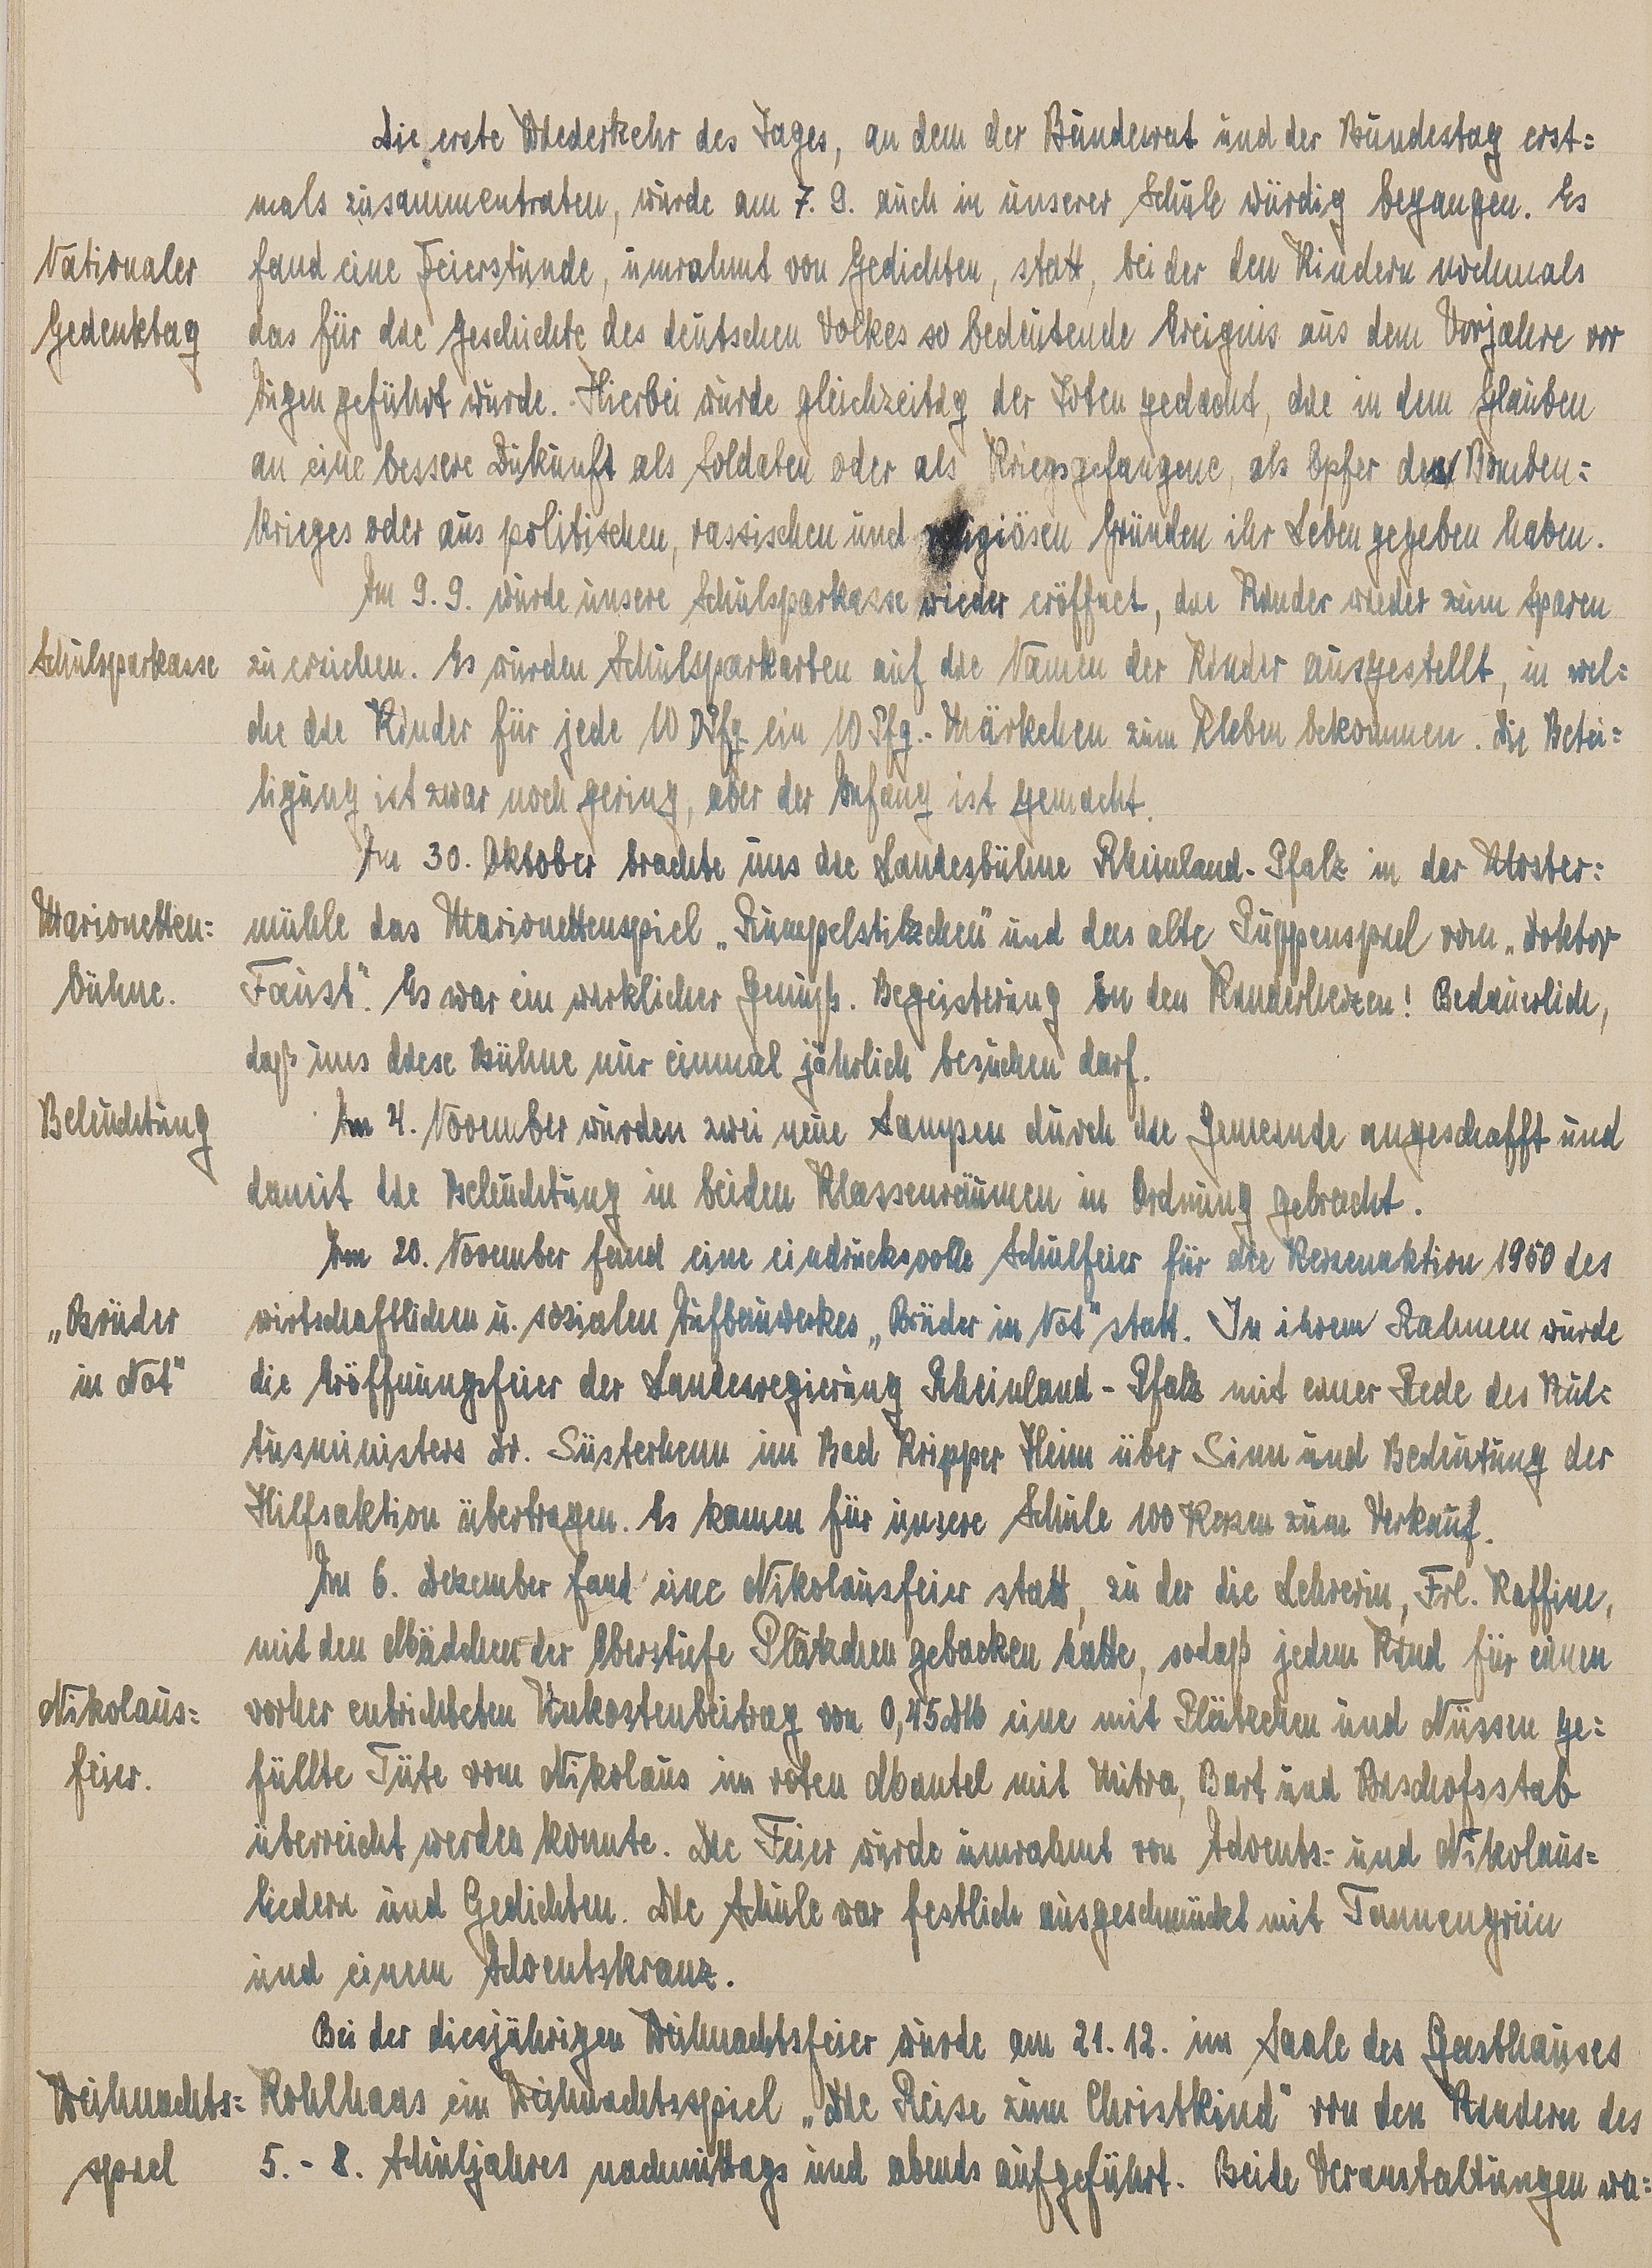 Die erste Wiederkehr des Tages, an dem der Bundesrat und der Bundestag erst=
mals zusammentraten, wurde am 7. 9. auch in unserer Schule würdig begangen. Es
Nationaler
fand eine Feierstunde, umrahmt von Gedichten, statt, bei der den Kindern nochmals
Gedenktag
das für die Geschichte des deutschen Volkes so bedeutende Ereignis aus dem Vorjahre vor
Augen geführt wurde. Hierbei wurde gleichzeitig der Toten gedacht, die in dem Glauben
an eine bessere Zukunft als Soldaten oder als Kriegsgefangene, als Opfer des Bomben=
krieges oder aus politischen, rassischen und religiösen Gründen ihr Leben gegeben haben.
Am 9. 9. wurde unsere Schulsparkasse wieder eröffnet, die Kinder wieder zum Sparen
Schulsparkasse
zu erziehen. Es wurden Schulsparkarten auf die Namen der Kinder ausgestellt, in wel=
che die Kinder für jede 10 DPfg ein 10 Pfg.-Märkchen zum Kleben bekommen. Die Betei=
ligung ist zwar noch gering, aber der Anfang ist gemacht.
Am 30. Oktober brachte uns die Landesbühne Rheinland-Pfalz in der Kloster=
Marionetten=
mühle das Marionettenspiel „Rumpelstilzchen" und das alte Puppenspiel vom „Doktor
bühne.
Faust". Es war ein wirklicher Genuß. Begeisterung in den Kinderherzen! Bedauerlich,
daß uns diese Bühne nur einmal jährlich besuchen darf.
Beleuchtung
Am 4. November wurden zwei neue Lampen durch die Gemeinde angeschafft und
damit die Beleuchtung in beiden Klassenräumen in Ordnung gebracht.
Am 20. November fand eine eindrucksvolle Schulfeier für die Kerzenaktion 1950 des
„Brüder
wirtschaftlichen u. sozialen Aufbauwerkes „Brüder in Not" statt. In ihrem Rahmen wurde
in Not"
die Eröffnungsfeier der Landesregierung Rheinland-Pfalz mit einer Rede des Kul=
tusministers Dr. Süsterhenn im Bad Kripper Heim über Sinn und Bedeutung der
Hilfsaktion übertragen. Es kamen für unsere Schule 100 Kerzen zum Verkauf.
Am 6. Dezember fand eine Nikolausfeier statt, zu der die Lehrerin, Frl. Raffine,
mit den Mädchen der Oberstufe Plätzchen gebacken hatte, sodaß jedem Kind für einen
Nikolaus=
vorher entrichteten Unkostenbeitrag von 0,45 DM eine mit Plätzchen und Nüssen ge=
feier.
füllte Tüte vom Nikolaus im roten Mantel mit Mitra, Bart und Bischofsstab
überreicht werden konnte. Die Feier wurde umrahmt von Advents= und Nikolaus=
liedern und Gedichten. Die Schule war festlich ausgeschmückt mit Tannengrün
und einem Adventskranz.
Bei der diesjährigen Weihnachtsfeier wurde am 21. 12. im Saale des Gasthauses
Weihnachts=
Kohlhaas ein Weihnachtsspiel „Die Reise zum Christkind" von den Kindern des
spiel
5. - 8. Schuljahres nachmittags und abends aufgeführt. Beide Veranstaltungen wa=